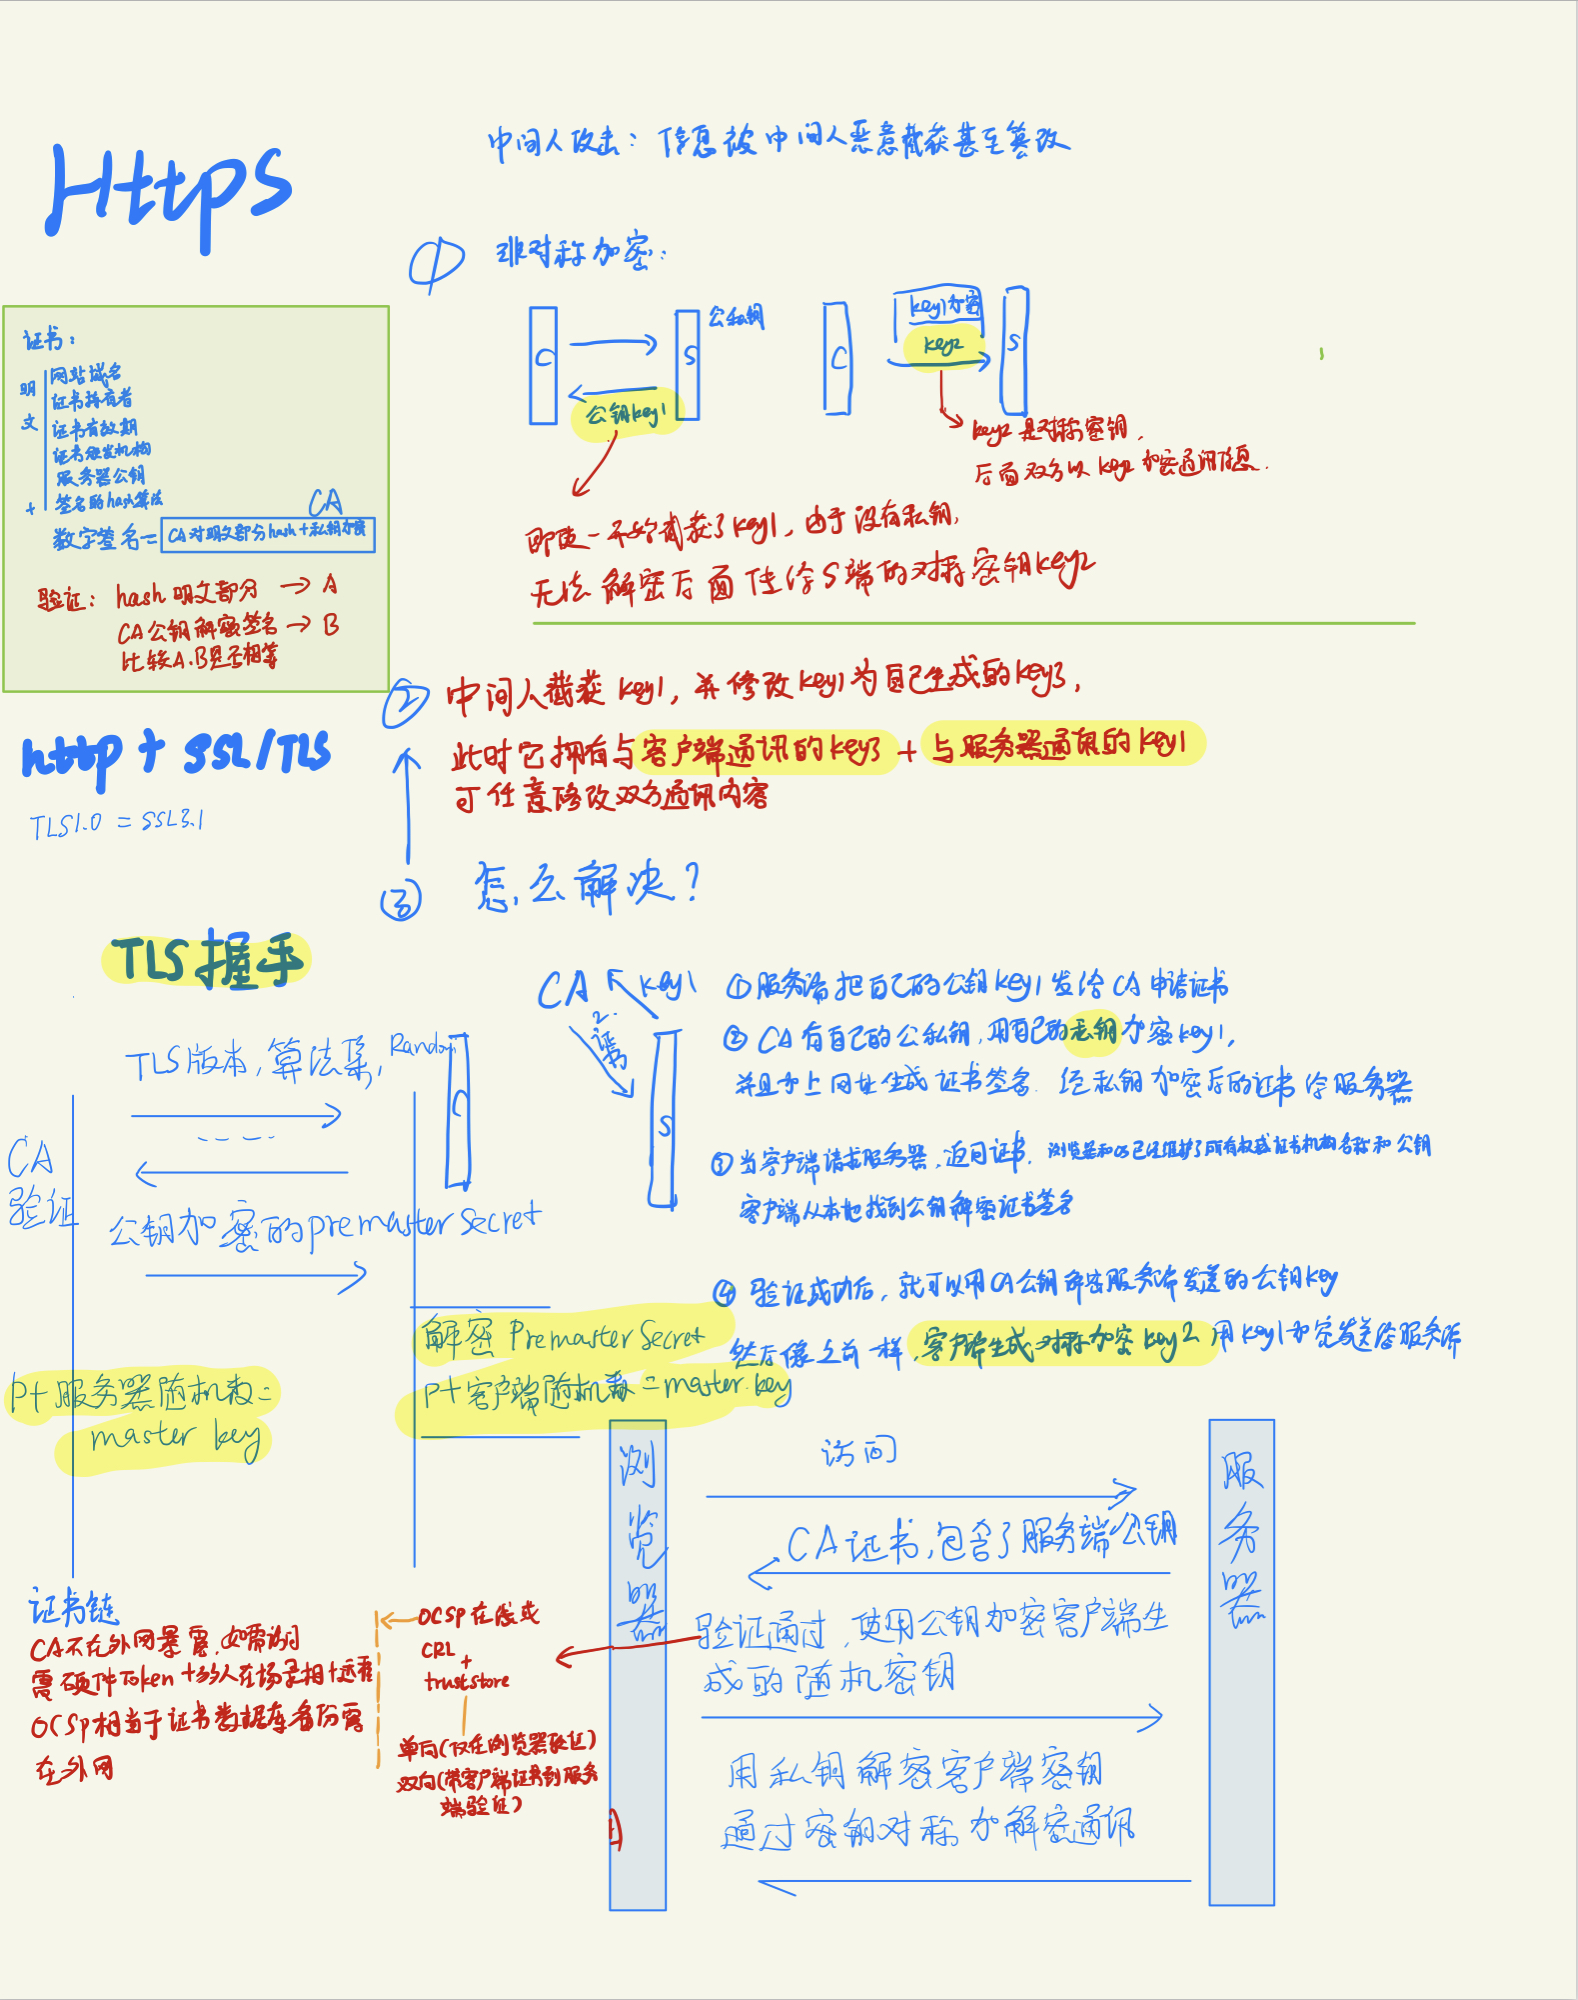 Https
中间人攻击：信息被中间人恶意截获甚至篡改
① 非对称加密：
C
S
公私钥
公钥key1
C
key1加密
key2
S
key2 是对称密钥，
后面双方以 key2 加密通讯信息.
即使一开始截获了key1，由于没有私钥，
无法解密后面传给S端的对称密钥key2
证书：
明文
网站域名
证书持有者
证书有效期
证书颁发机构
服务器公钥
签名的hash算法
+
CA
数字签名= CA对明文部分hash+私钥加密
验证：hash明文部分 → A
CA公钥解密签名 → B
比较A.B是否相等
② 中间人截获 key1，并修改key1为自己生成的key3，
此时它拥有与客户端通讯的key3 + 与服务器通讯的key1
可任意修改双方通讯内容
http + SSL/TLS
TLS1.0 = SSL3.1
③ 怎么解决？
CA
key1
2.
证书
S
① 服务端把自己的公钥key1发给CA申请证书
② CA有自己的公私钥，用自己的私钥加密key1，
并且加上网址生成证书签名. 经私钥加密后的证书给服务器
③ 当客户端请求服务器，返回证书，浏览器和OS已经维护了所有权威证书机构名称和公钥
客户端从本地找到公钥解密证书签名
④ 验证成功后，就可以用CA公钥解密服务端发送的公钥key
然后像之前一样，客户端生成对称加密key2 用key1加密发送给服务端
TLS握手
TLS版本，算法集，Random
C
CA
验证
公钥加密的premaster Secret
解密 Premaster Secret
P+客户端随机数=master.key
P+服务器随机数=
master key
浏览器
服务器
访问
CA证书，包含了服务端公钥
验证通过，使用公钥加密客户端生
成的随机密钥
用私钥解密客户端密钥
通过密钥对称加解密通讯
证书链
CA不在外网暴露，如需访问
需硬件token+多人在场
OCSP相当于证书数据库备份需
在外网
OCSP在线或
CRL
+
truststore
单向(仅在浏览器验证)
双向(带客户端证书到服务
端验证)